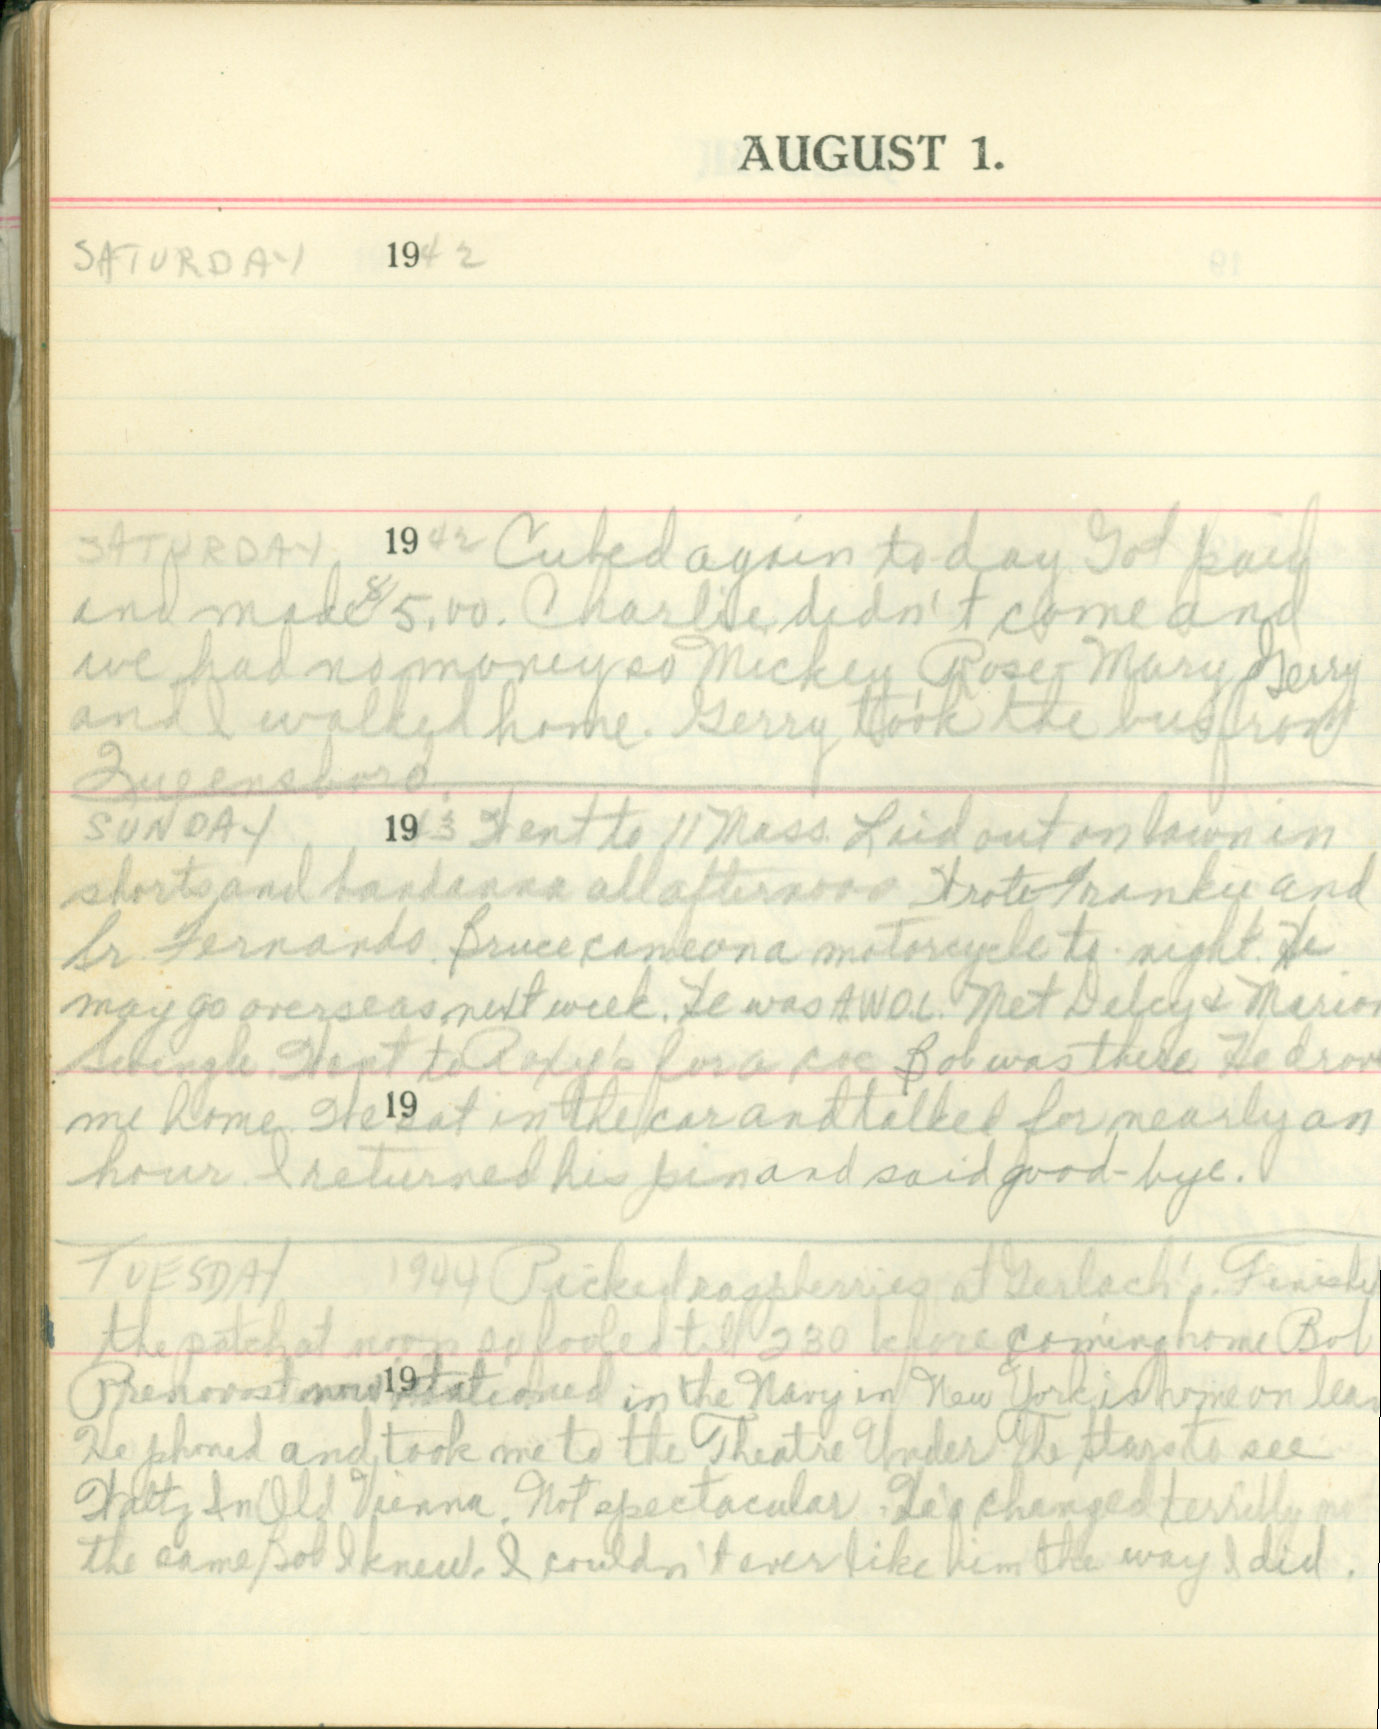 AUGUST 1.
SATURDAY 1942
SATURDAY 1942 Cubed again to-day Got paid
and made $5.00. Charlie didn't come and
we had no money so Mickey, Rose-Mary, Gerry
and I walked home. Gerry took the bus from
Queensboro.
SUNDAY 1943 Went to 11 Mass. Laid out on lawn in
shorts and bandanna all afternoon Wrote Frankie and
Sr. Fernando. Bruce came on a motorcycle to-night. He
may go overseas next week. He was A.W.O.L. Met & Marion
Swingle. Went to Roxy's for a coc Bob was there He drove
19
me home. We sat in the car and talked for nearly an
hour. I returned his pin and said good-bye.
TUESDAY 1944 Picked raspberries at Gerlach's.
the patch at noon so fooled till 230 before coming home Bob
19
now stationed in the Navy in New York is home on
He phoned and took me to the Theatre Under The Stars to see
Waltz In Old Vienna. Not spectacular. He's changed terribly
the same Bob I knew. I couldn't ever like him the way I did.